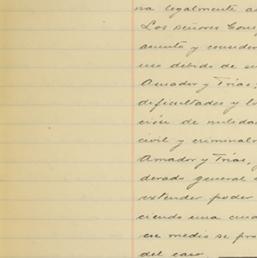 na legalmente a
Los señores Cons
amento y consider
uso debido de su
Amador y Trías,
dificultades y lo
ción de nulidad
civil y criminal
Amador y Trías,
derado general
extender poder
ciendo una cua
ese medio se pro
del caso